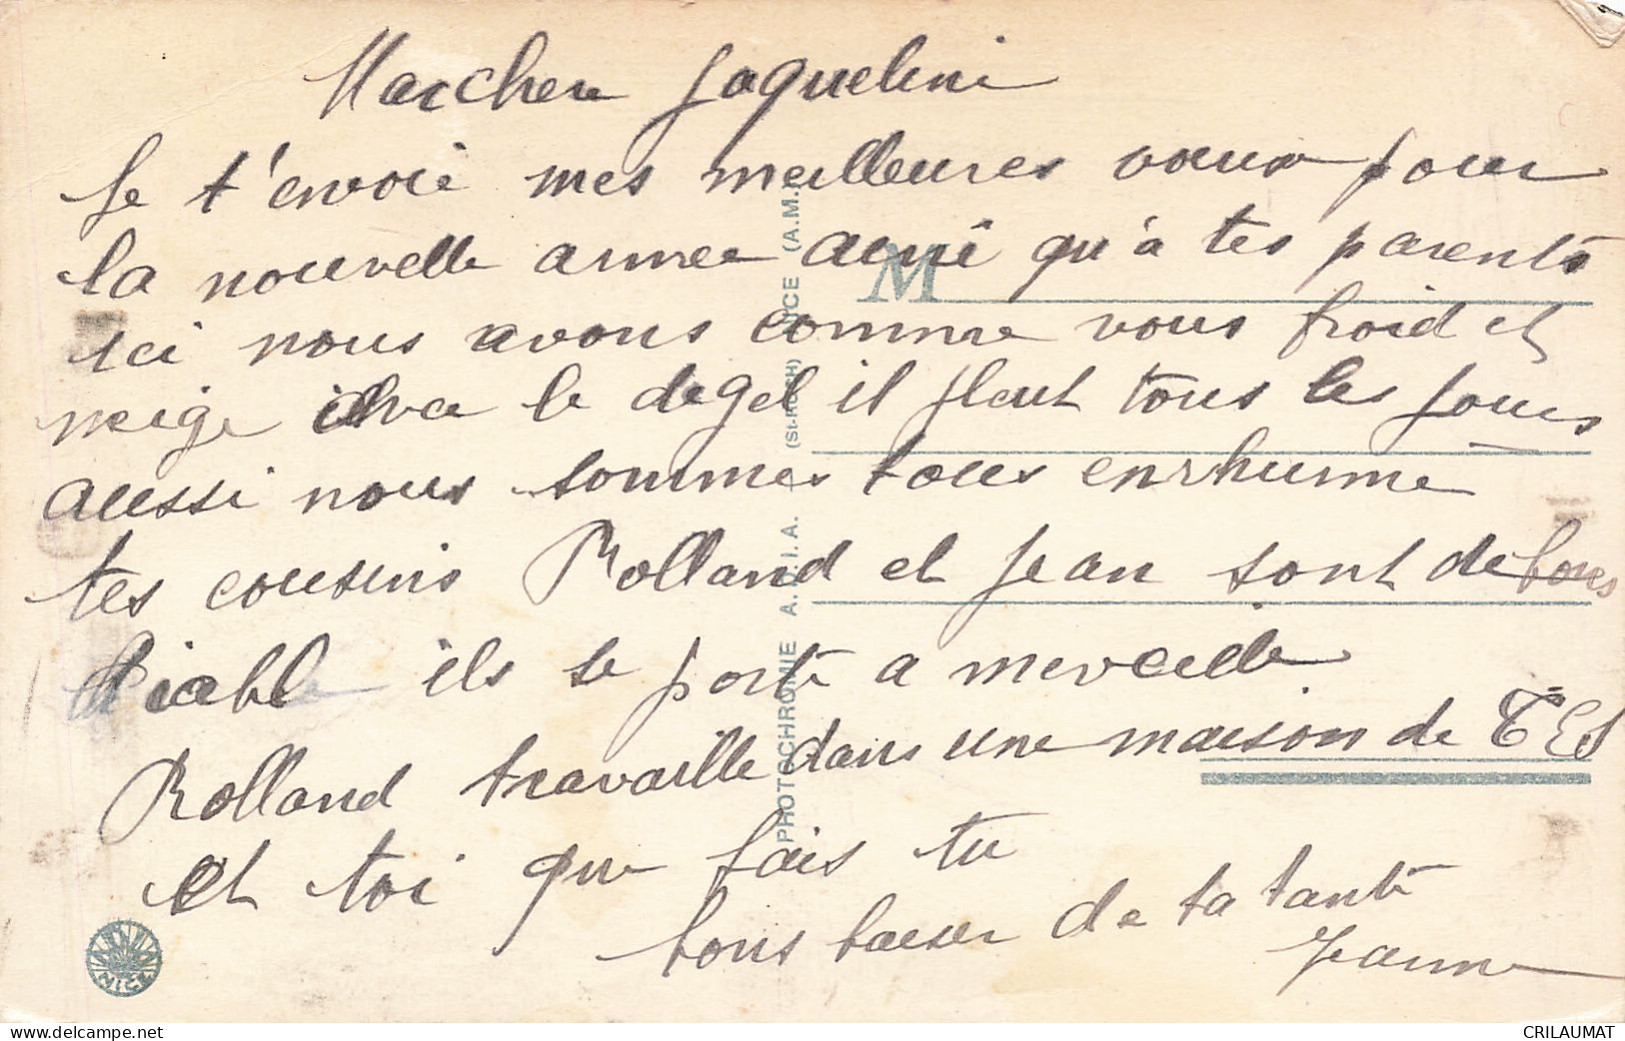 Ma chere Jaqueline
Je t'envoie mes meilleures voeux pour
la nouvelle annee ainsi qu'a tes parents
ici nous avons comme vous froid et
neige avec le degel il pleut tous les jours
aussi nous sommes tous enrhume
tes cousins Rolland et Jean sont de bons
diable ils se porte a merveille
Rolland travaille dans une maison de T E S
et toi que fais tu
bons baiser de ta tante
Jeanne
M
PHOTOCHROMIE A.D.I.A. (St-ROCH) NICE (A.M.)
NICE
delcampe.net
CRILAUMAT